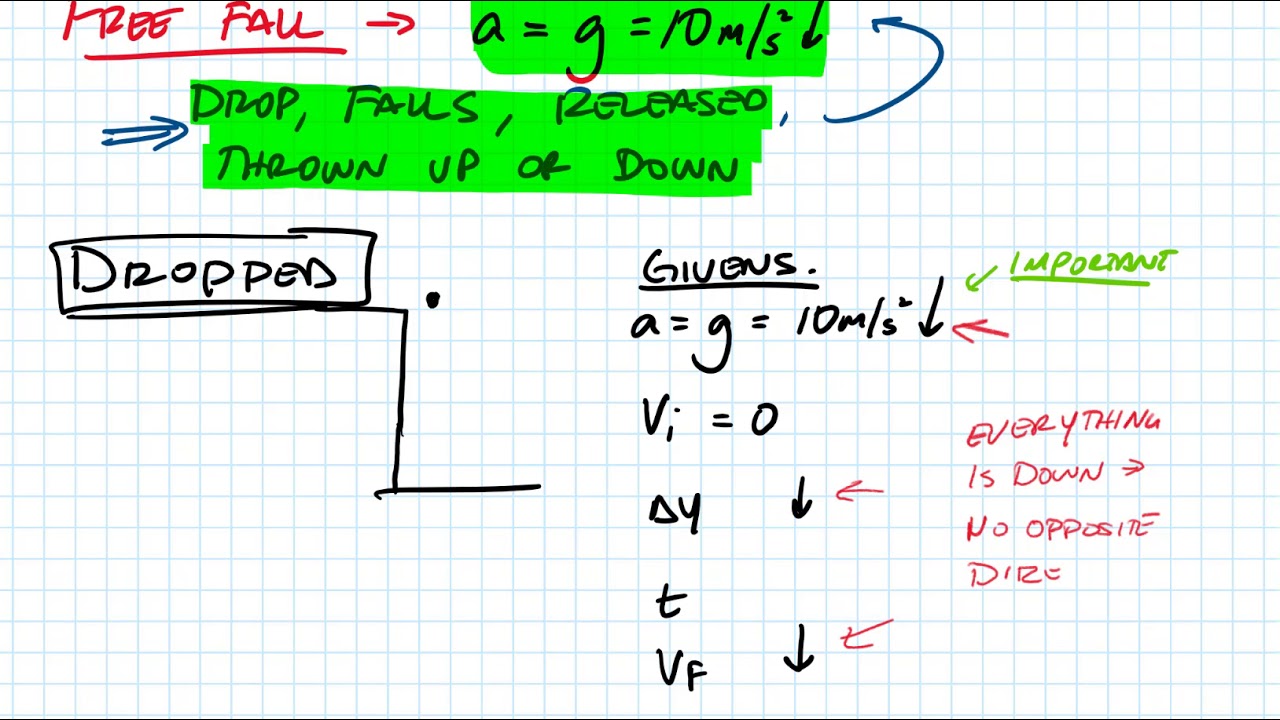 FREE FALL → a = g = 10m/s² ↓
⇒ DROP, FALLS, RELEASED,
THROWN UP OR DOWN
DROPPED
GIVENS.
IMPORTANT
a = g = 10m/s² ↓
Vi = 0
Δy ↓
t
VF ↓
EVERYTHING
IS DOWN →
NO OPPOSITE
DIRE